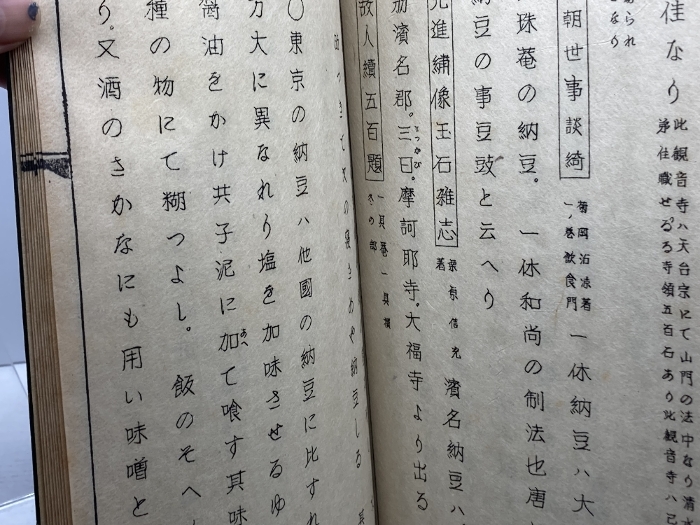 られ
なり
佳なり此観音寺ハ天台宗にて山門の法中なり清
弟住職せる寺領五百石あり此観音寺ハ己
朝世事談綺 菊岡沾凉著
一ノ巻飲食門 一休納豆ハ大
珠菴の納豆。一休和尚の制法也唐
納豆の事豆豉と云へり
先進繍像玉石雑志 栗原信充
著 濱名納豆ハ、
濱名郡。三日。摩訶耶寺。大福寺より出る
故人續五百題 一具菴一具撰
冬の部
納豆しる
〇東京の納豆ハ他國の納豆に比すれ
方大に異なれり塩を加味させるゆ
醤油をかけ共子泥に加て喰す其味
種の物にて糊つよし。飯のそへ
り。又酒のさかなにも用い味噌と